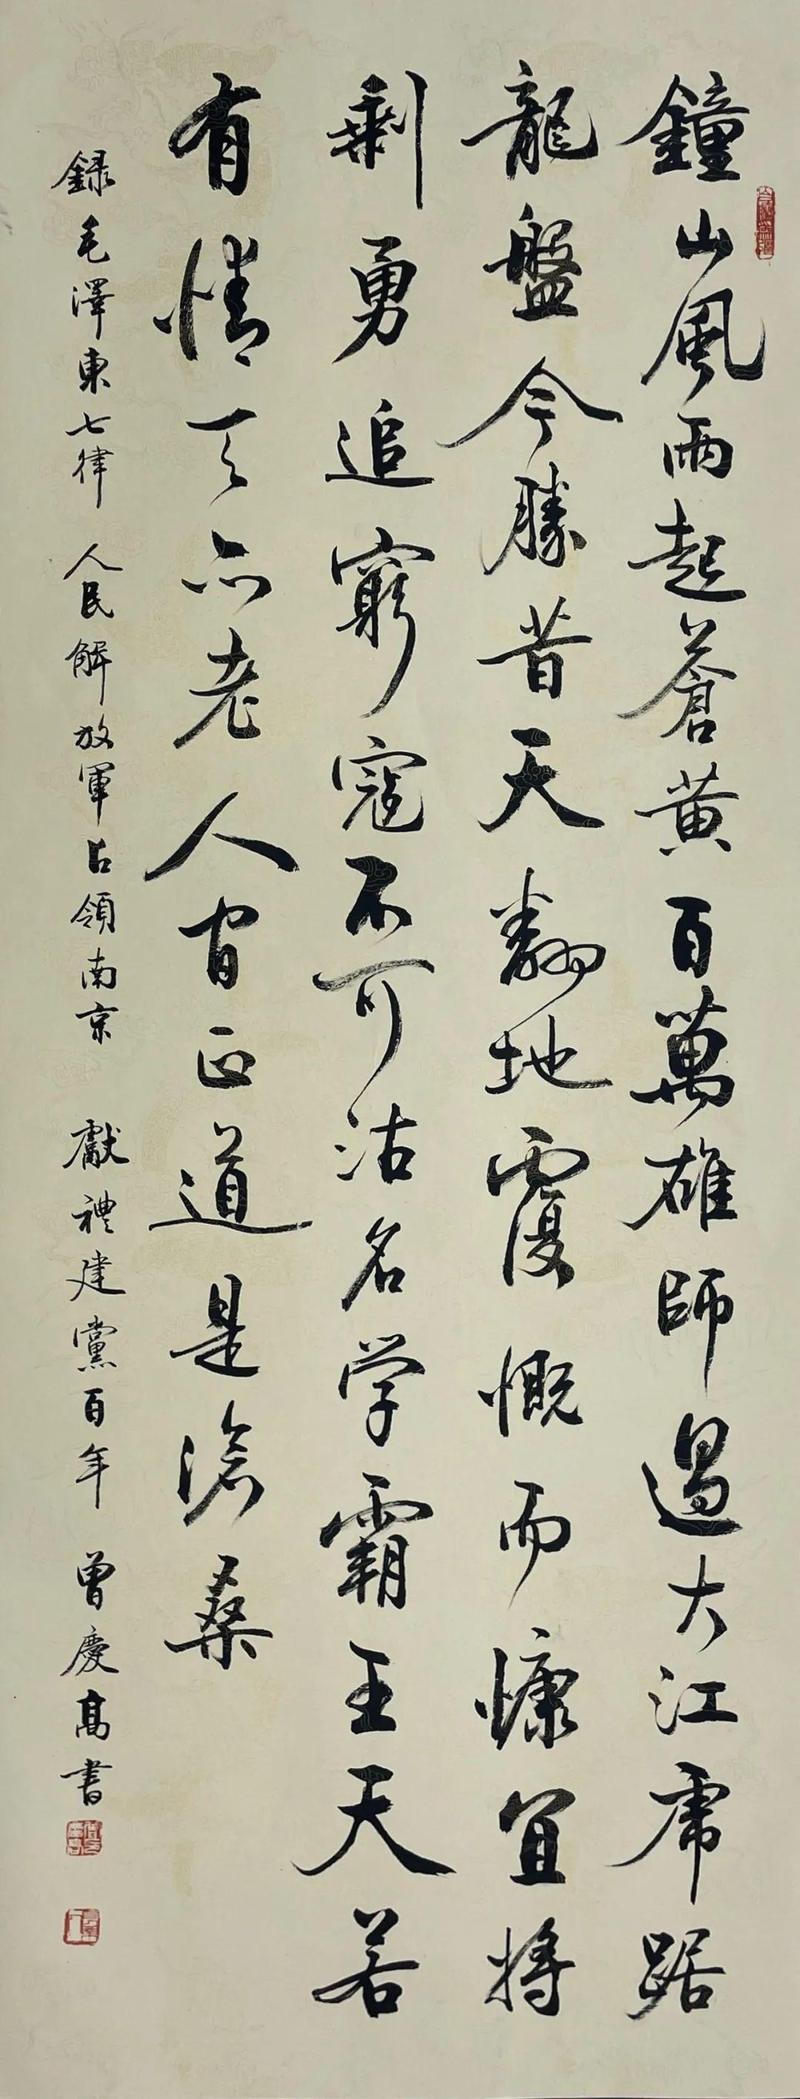 鐘山風雨起蒼黃百萬雄師過大江虎踞
龍盤今勝昔天翻地覆慨而慷宜將
剩勇追窮寇不可沽名学霸王天若
有情天亦老人间正道是滄桑
録毛澤東七律 人民解放軍占領南京 獻禮建黨百年 曾慶高書